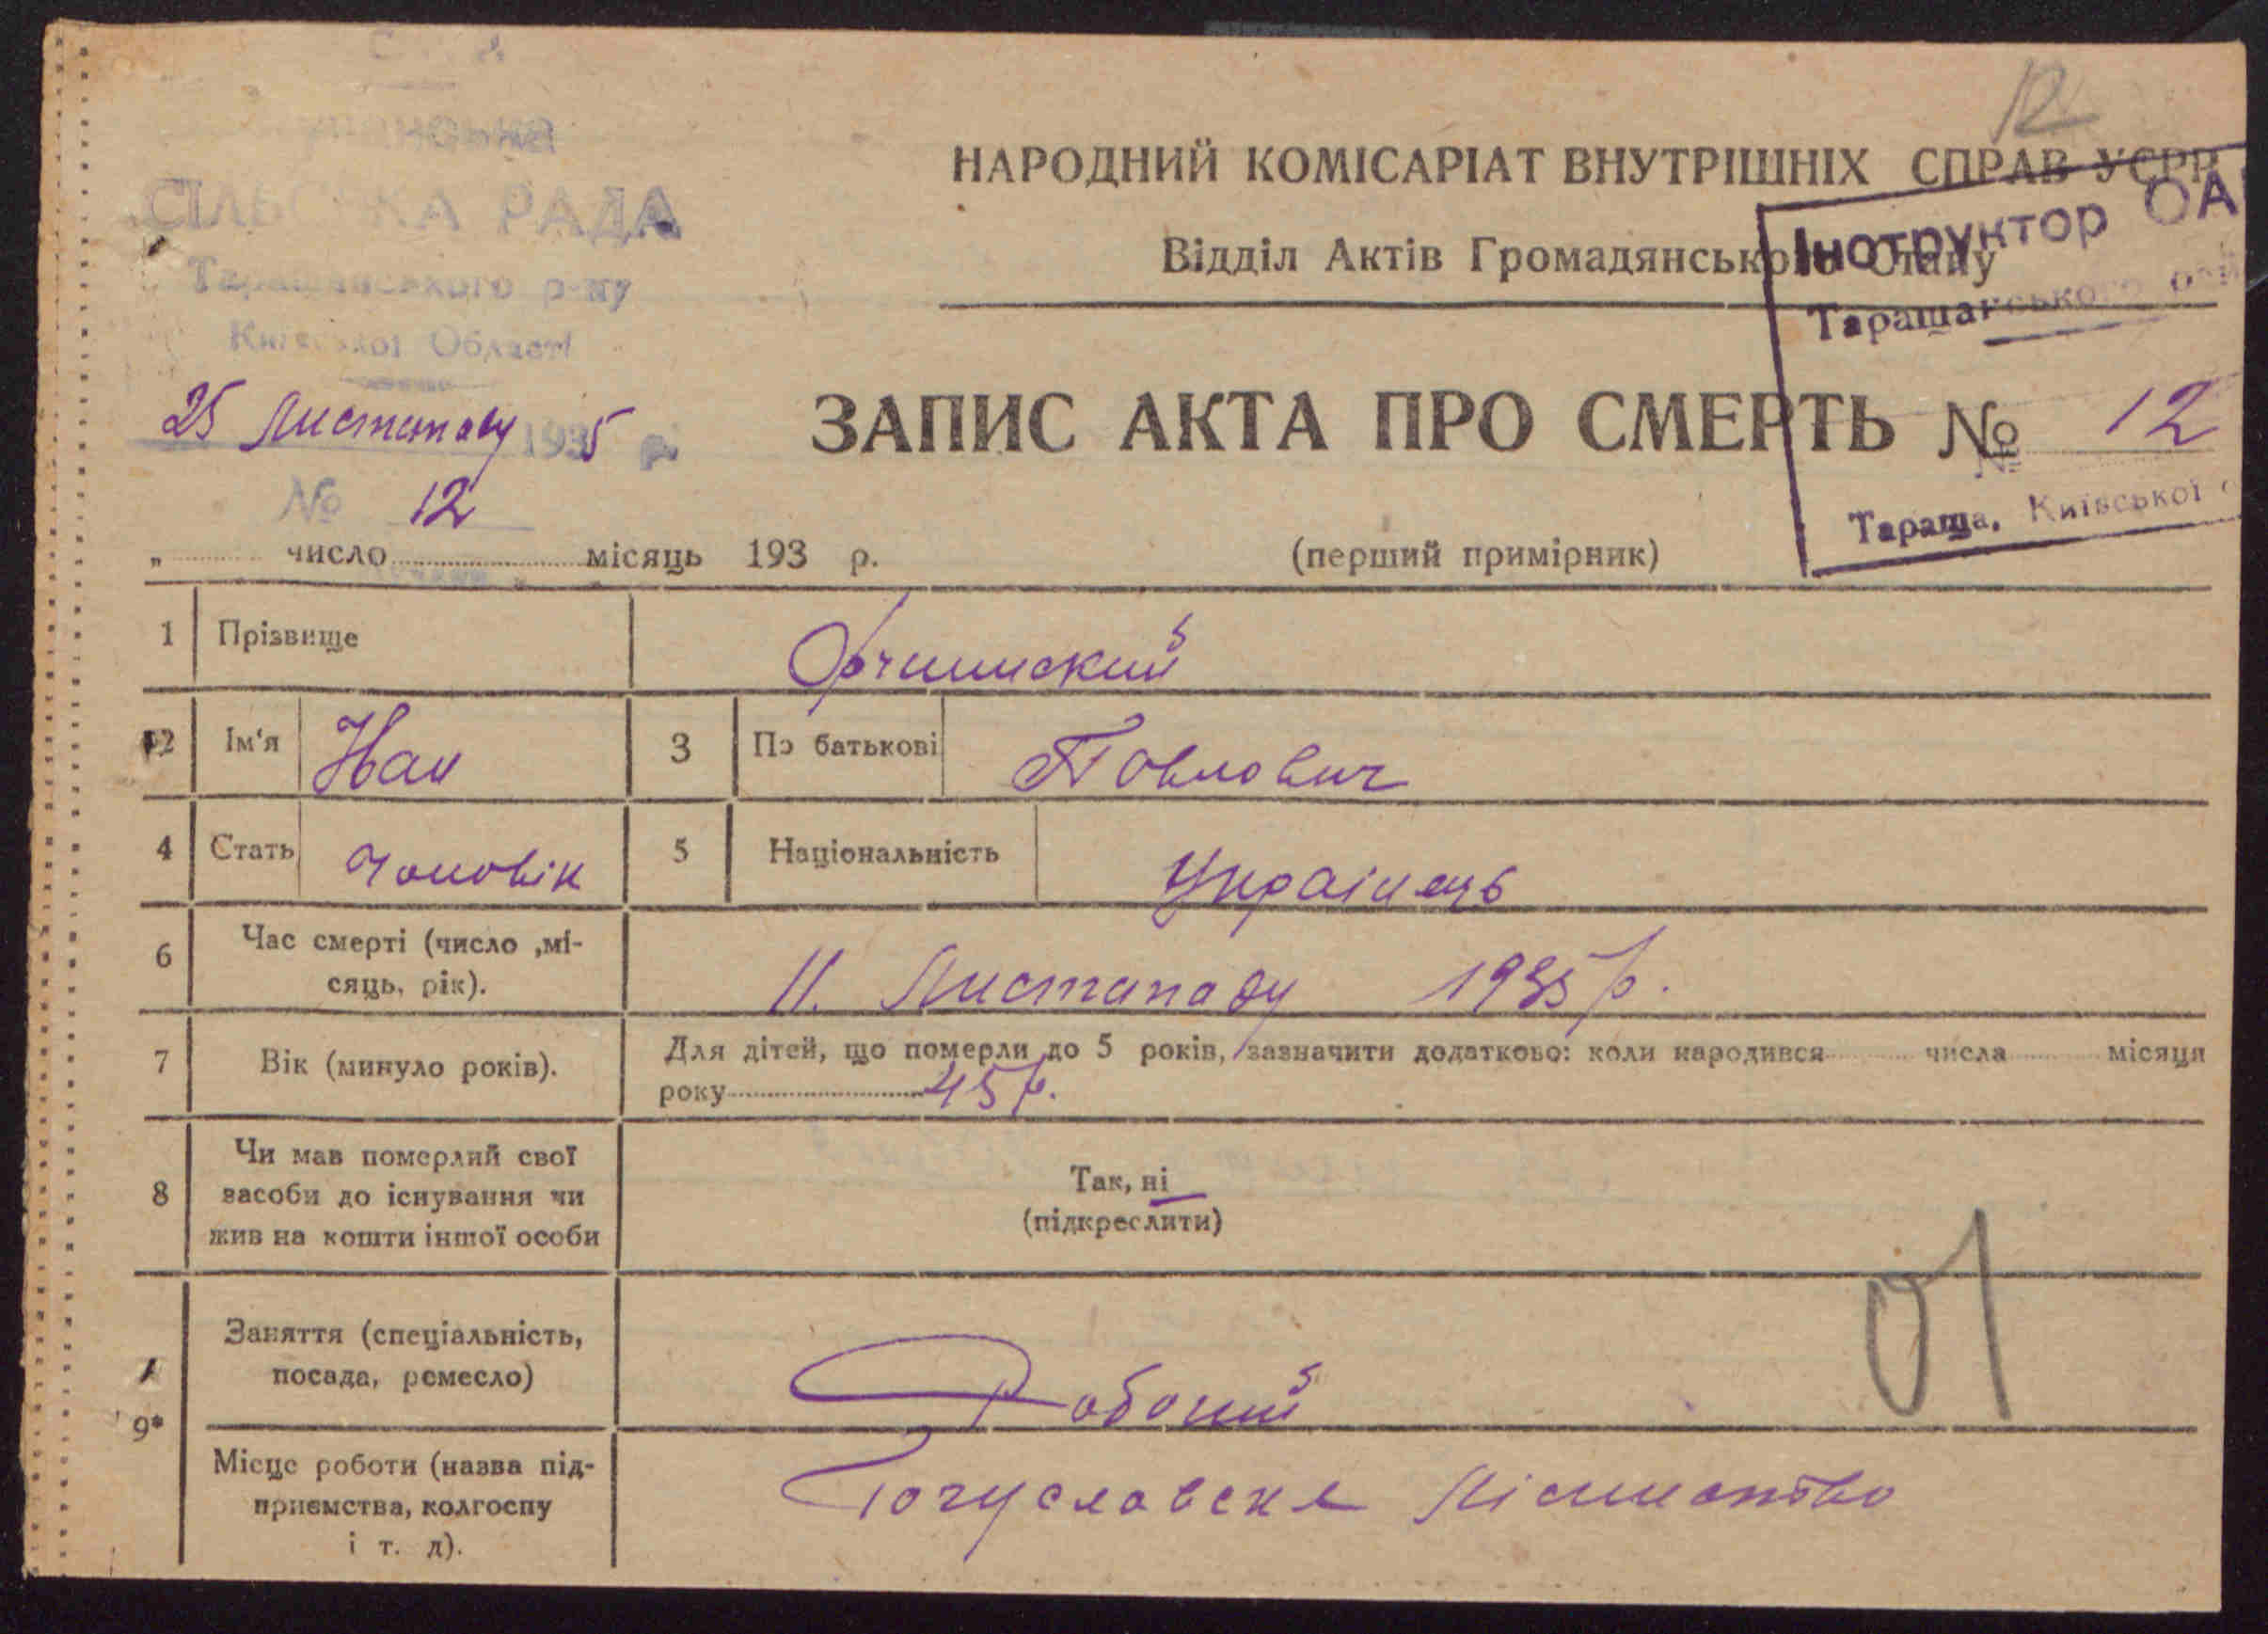 12
НАРОДНИЙ КОМІСАРІАТ ВНУТРІШНІХ СПРАВ УСРР
СІЛЬСЬКА РАДА
Інструктор ОА
Відділ Актів Громадянського Стану
Таращанського р-ну
Таращанського
Київської Області
25 Листопаду 1935 р.
ЗАПИС АКТА ПРО СМЕРТЬ № 12
№ 12
Тараща, Київської
„ число місяць 193 р. (перший примірник)
1 Прізвище
2 Ім'я Иан 3 По батькові Повлович
4 Стать Чоловік 5 Національність Українець
6 Час смерті (число ,мі-
сяць, рік).
11. Листопаду 1935 р.
7 Вік (минуло років).
Для дітей, що померли до 5 років, зазначити додатково: коли народився числа місяця
року 45 р.
8 Чи мав померлий свої
засоби до існування чи
жив на кошти іншої особи
Так, ні
(підкреслити)
01
9* Заняття (спеціальність,
посада, ремесло)
Робочий
Місце роботи (назва під-
приємства, колгоспу
і т. д).
Богуславске Лісництво